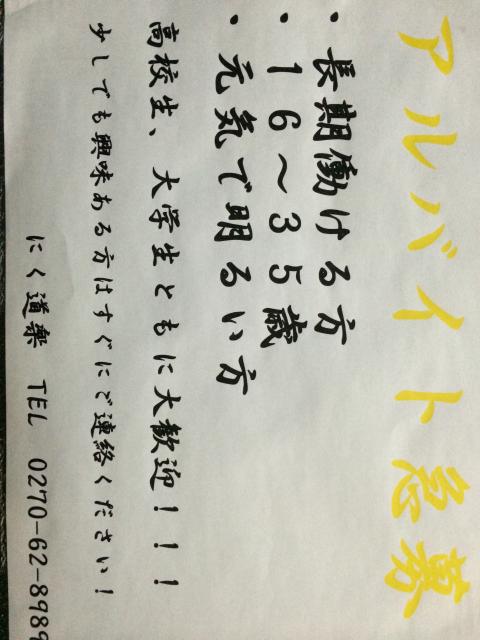 アルバイト急募
・長期働ける方
・16～35歳
・元気で明るい方
高校生、大学生ともに大歓迎！！！
少しでも興味ある方はすぐにご連絡ください！
にく道楽 TEL 0270-62-8989